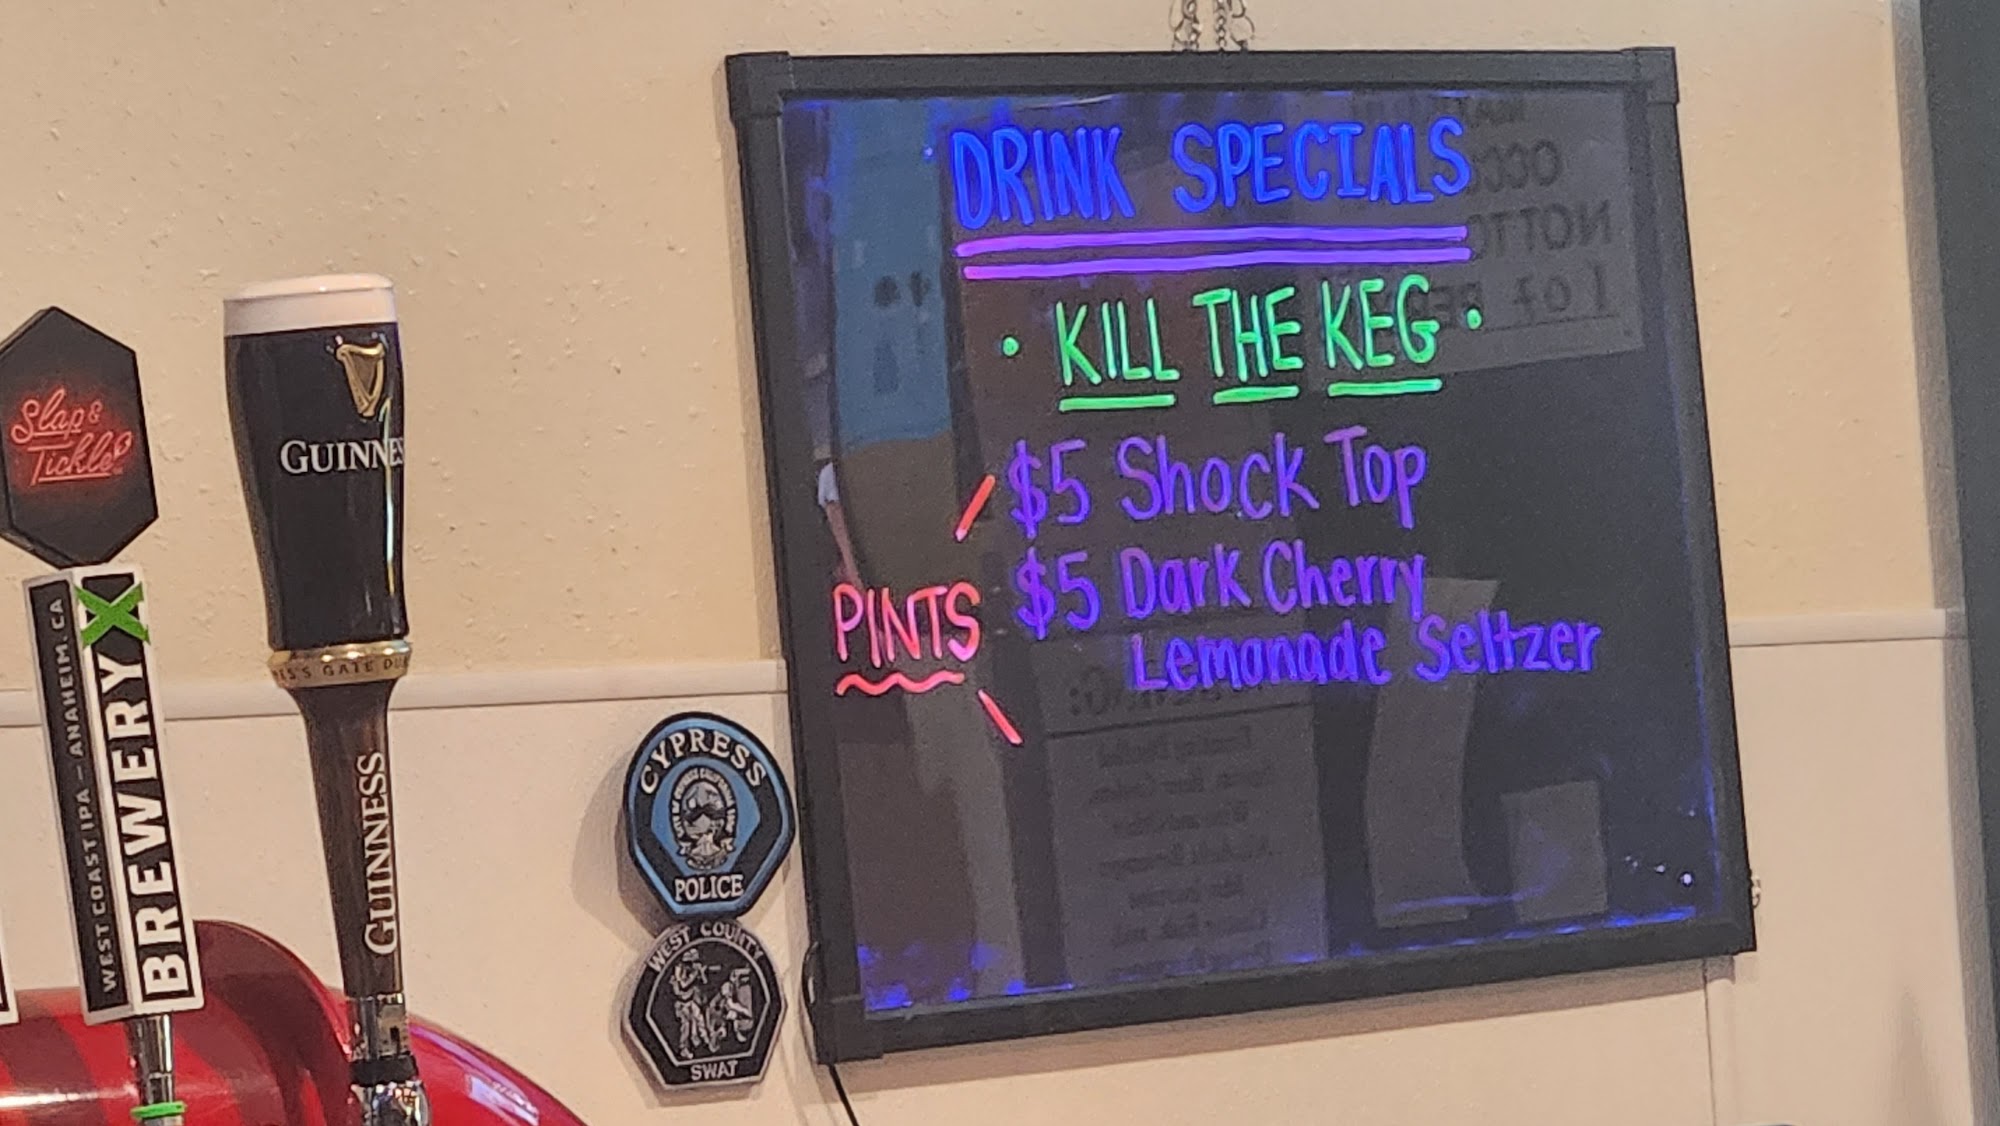 DRINK SPECIALS
• KILL THE KEG •
$5 Shock Top
$5 Dark Cherry
Lemonade Seltzer
PINTS
Slap &
Tickle
WEST COAST IPA - ANAHEIM, CA
BREWERY X
GUINNESS
GATE
GUINNESS
CYPRESS
POLICE
WEST COUNTY
SWAT